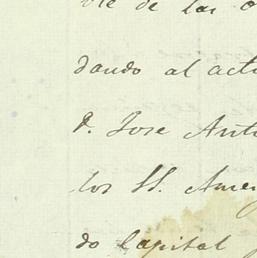 de las
dando al actu
D. Jose Anto
los SS. Amer
do Capital y